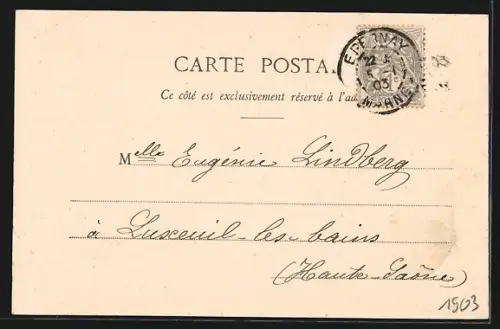 CARTE POSTA
Ce côté est exclusivement réservé à l'ad
EPERNAY
22
03
MARNE
Melle Eugénie Lindberg
à Luxeuil-les-bains
(Haute-Saône)
1903